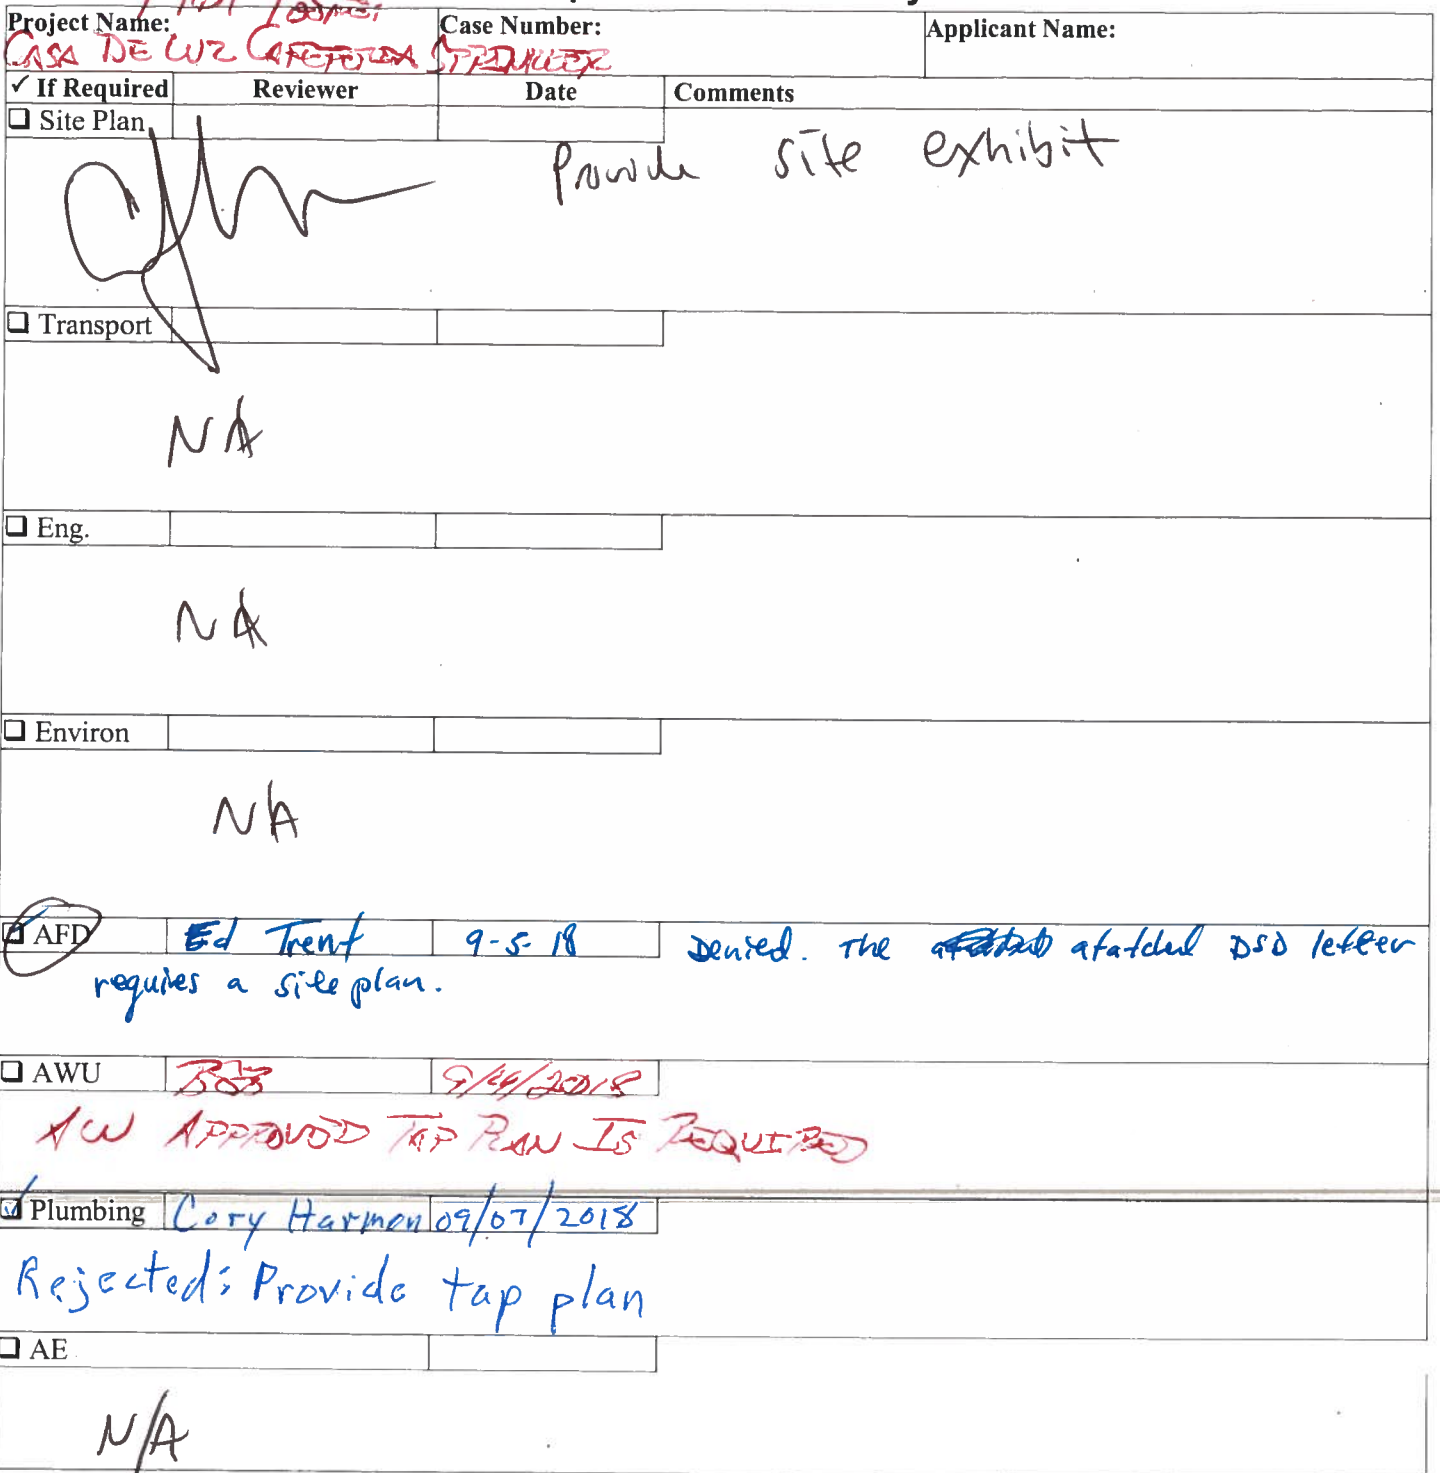 Project Name:
Case Number:
Applicant Name:
CASA DE LUZ CAFETERIA SPRINKLER
✓ If Required Reviewer Date Comments
❑ Site Plan
Provide site exhibit
❑ Transport
NA
❑ Eng.
NA
❑ Environ
NA
❑ AFD Ed Trent 9-5-18 Denied. The atatched DSD letter
requires a site plan.
❑ AWU BOB 2018
AW APPROVED TAP PLAN IS REQUIRED
☑ Plumbing Cory Harmon 09/07/2018
Rejected: Provide tap plan
❑ AE
N/A